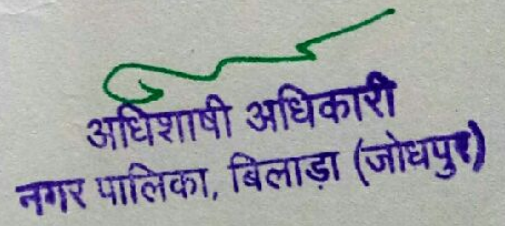 अधिशाषी अधिकारी
नगर पालिका, बिलाड़ा (जोधपुर)